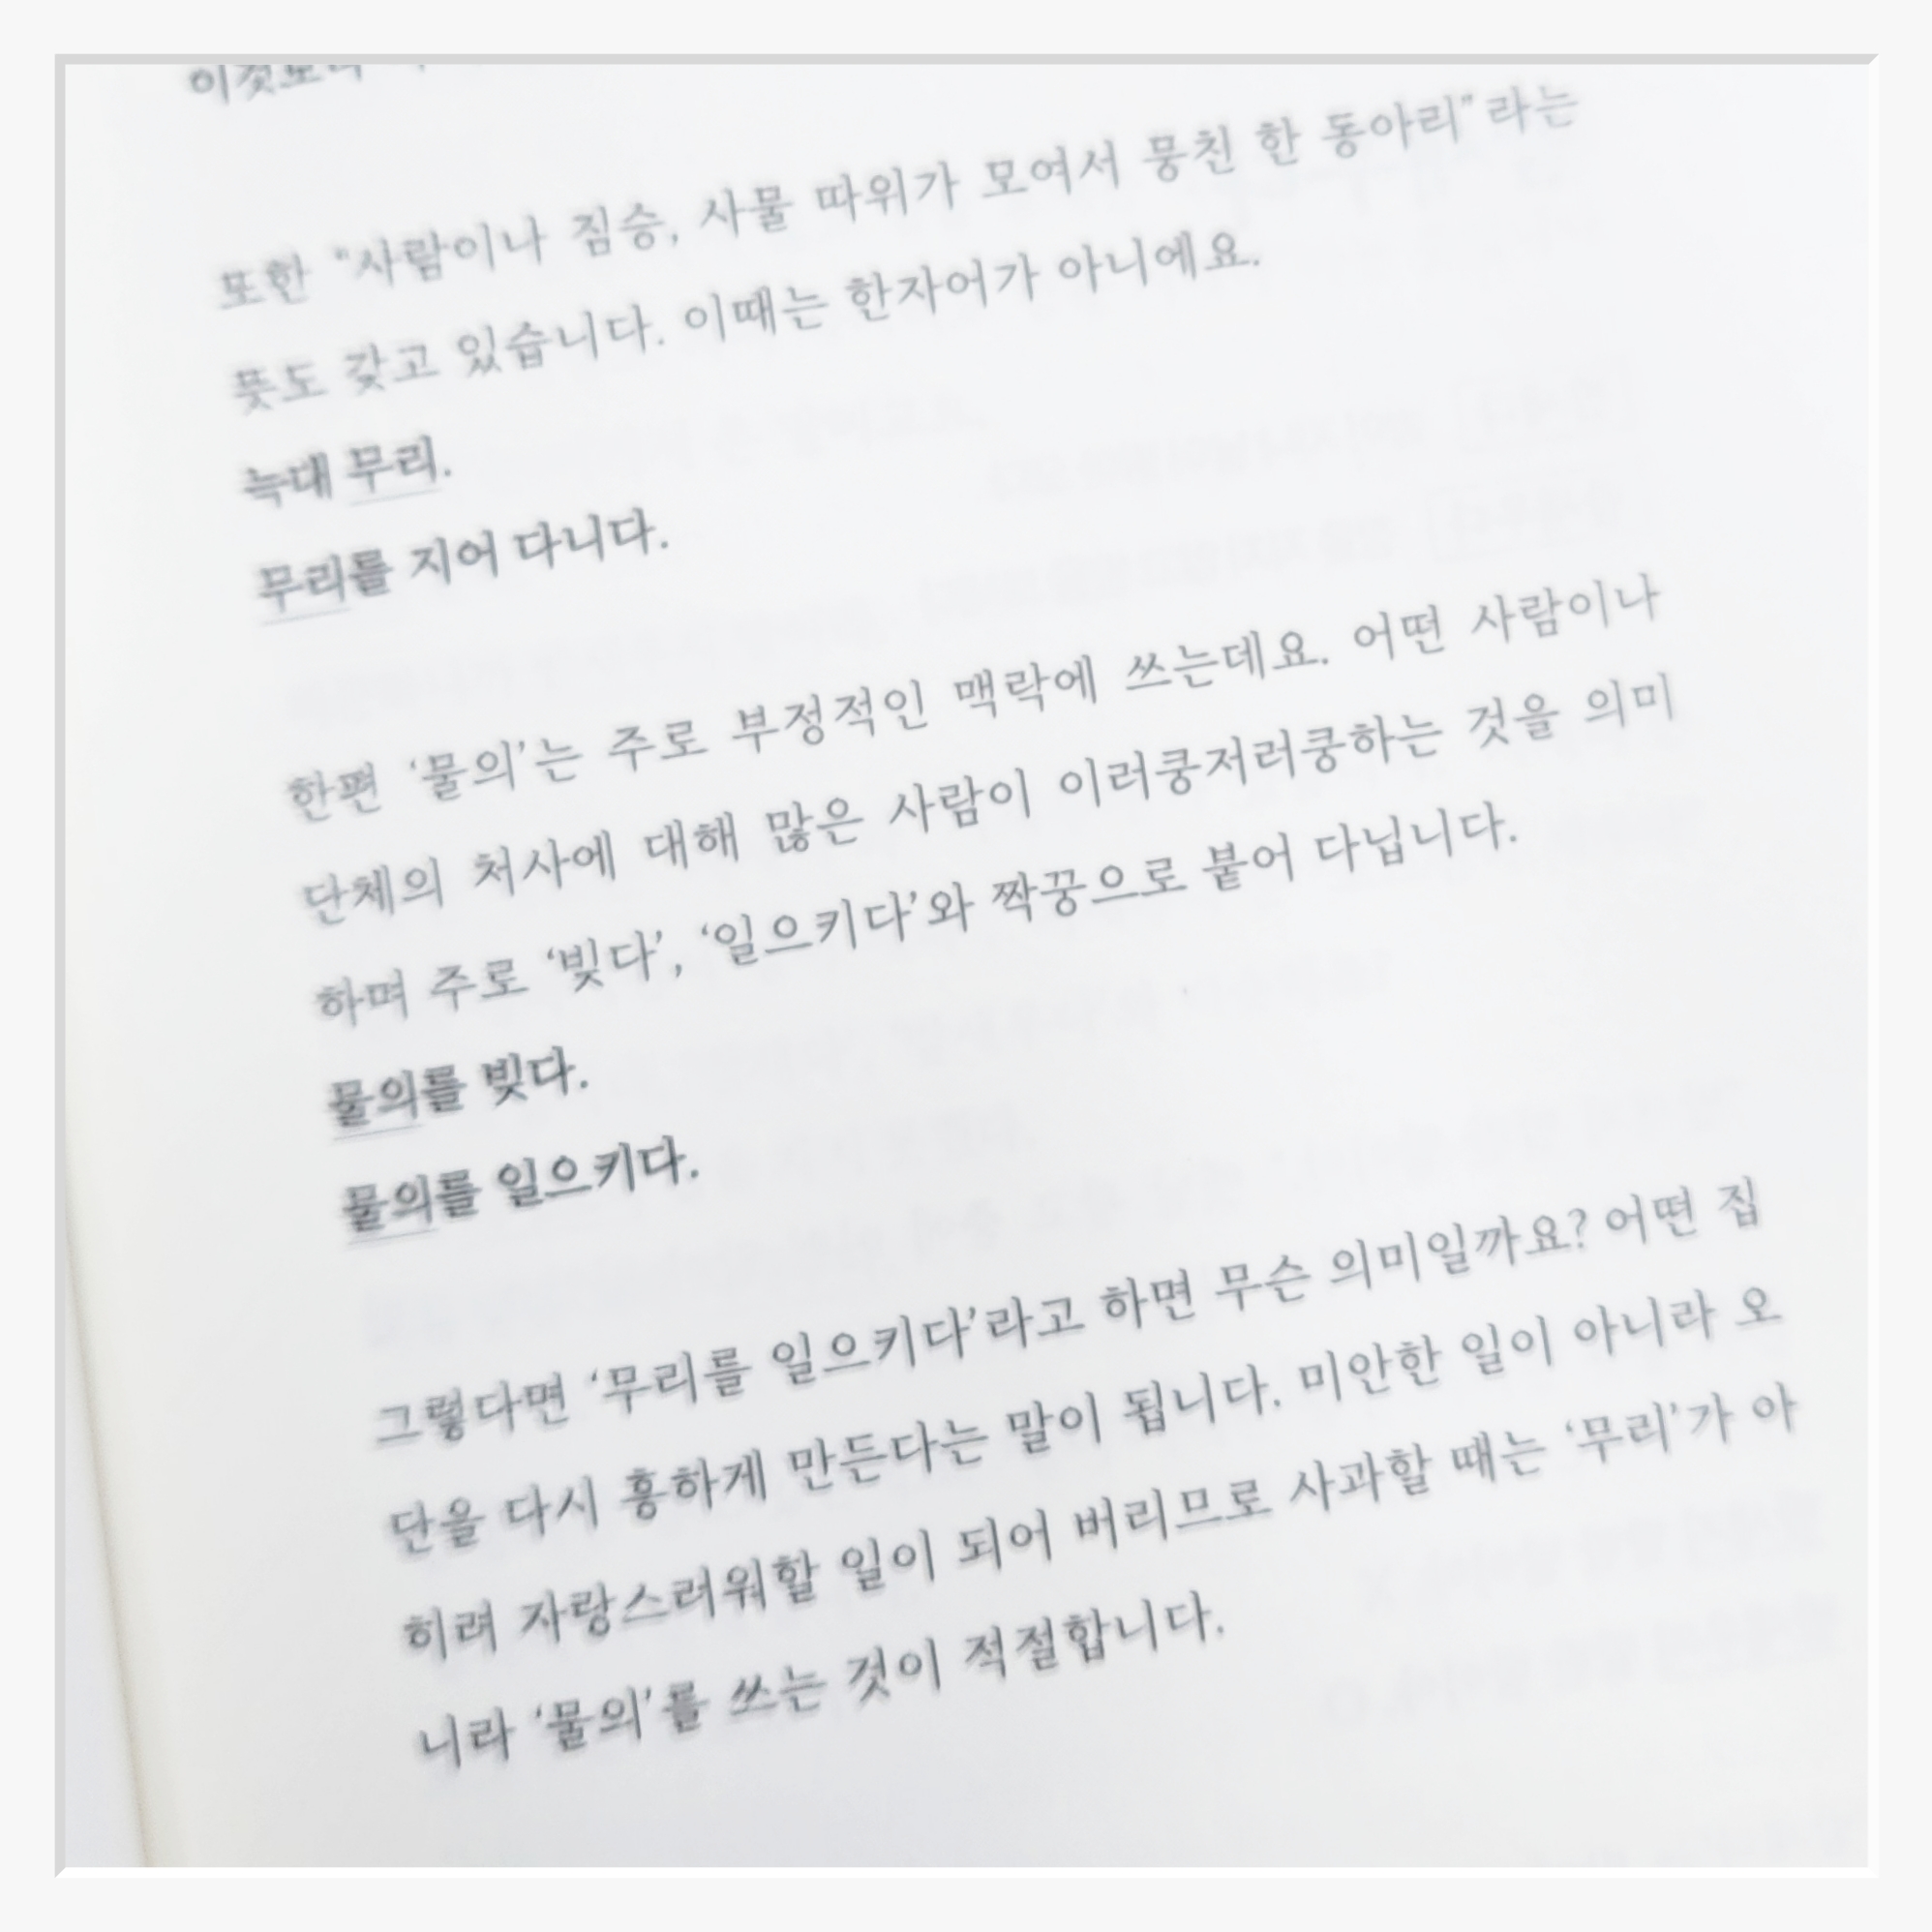 또한 "사람이나 짐승, 사물 따위가 모여서 뭉친 한 동아리"라는
뜻도 갖고 있습니다. 이때는 한자어가 아니에요.
늑대 무리.
무리를 지어 다니다.
한편 ‘물의’는 주로 부정적인 맥락에 쓰는데요. 어떤 사람이나
단체의 처사에 대해 많은 사람이 이러쿵저러쿵하는 것을 의미
하며 주로 ‘빚다’, ‘일으키다’와 짝꿍으로 붙어 다닙니다.
물의를 빚다.
물의를 일으키다.
그렇다면 ‘무리를 일으키다’라고 하면 무슨 의미일까요? 어떤 집
단을 다시 흥하게 만든다는 말이 됩니다. 미안한 일이 아니라 오
히려 자랑스러워할 일이 되어 버리므로 사과할 때는 ‘무리’가 아
니라 ‘물의’를 쓰는 것이 적절합니다.